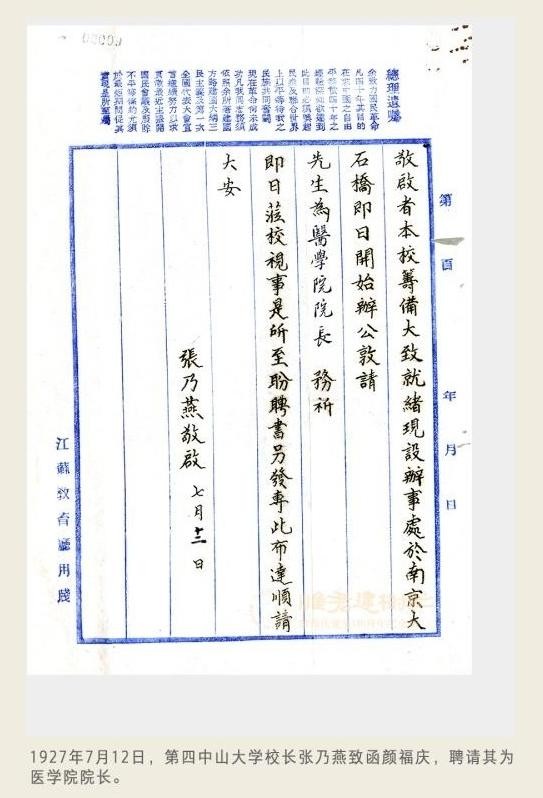 總理遺囑
余致力國民革命
凡四十年其目的
在求中國之自由
平等積四十年之
經驗深知欲達到
此目的必須喚起
民眾及聯合世界
上以平等待我之
民族共同奮鬥
現在革命尚未成
功凡我同志務須
依照余所著建國
方略建國大綱三
民主義及第一次
全國代表大會宣
言繼續努力以求
貫澈最近主張開
國民會議及廢除
不平等條約尤須
於最短期間促其
實現是所至囑
第 頁 年 月 日
敬啟者本校籌備大致就緒現設辦事處於南京大
石橋即日開始辦公敦請
先生為醫學院院長 務祈
即日蒞校視事是所至盼聘書另發專此布達順請
大安
張乃燕敬啟 七月十二日
江蘇教育廳用牋
1927年7月12日，第四中山大学校长张乃燕致函颜福庆，聘请其为
医学院院长。